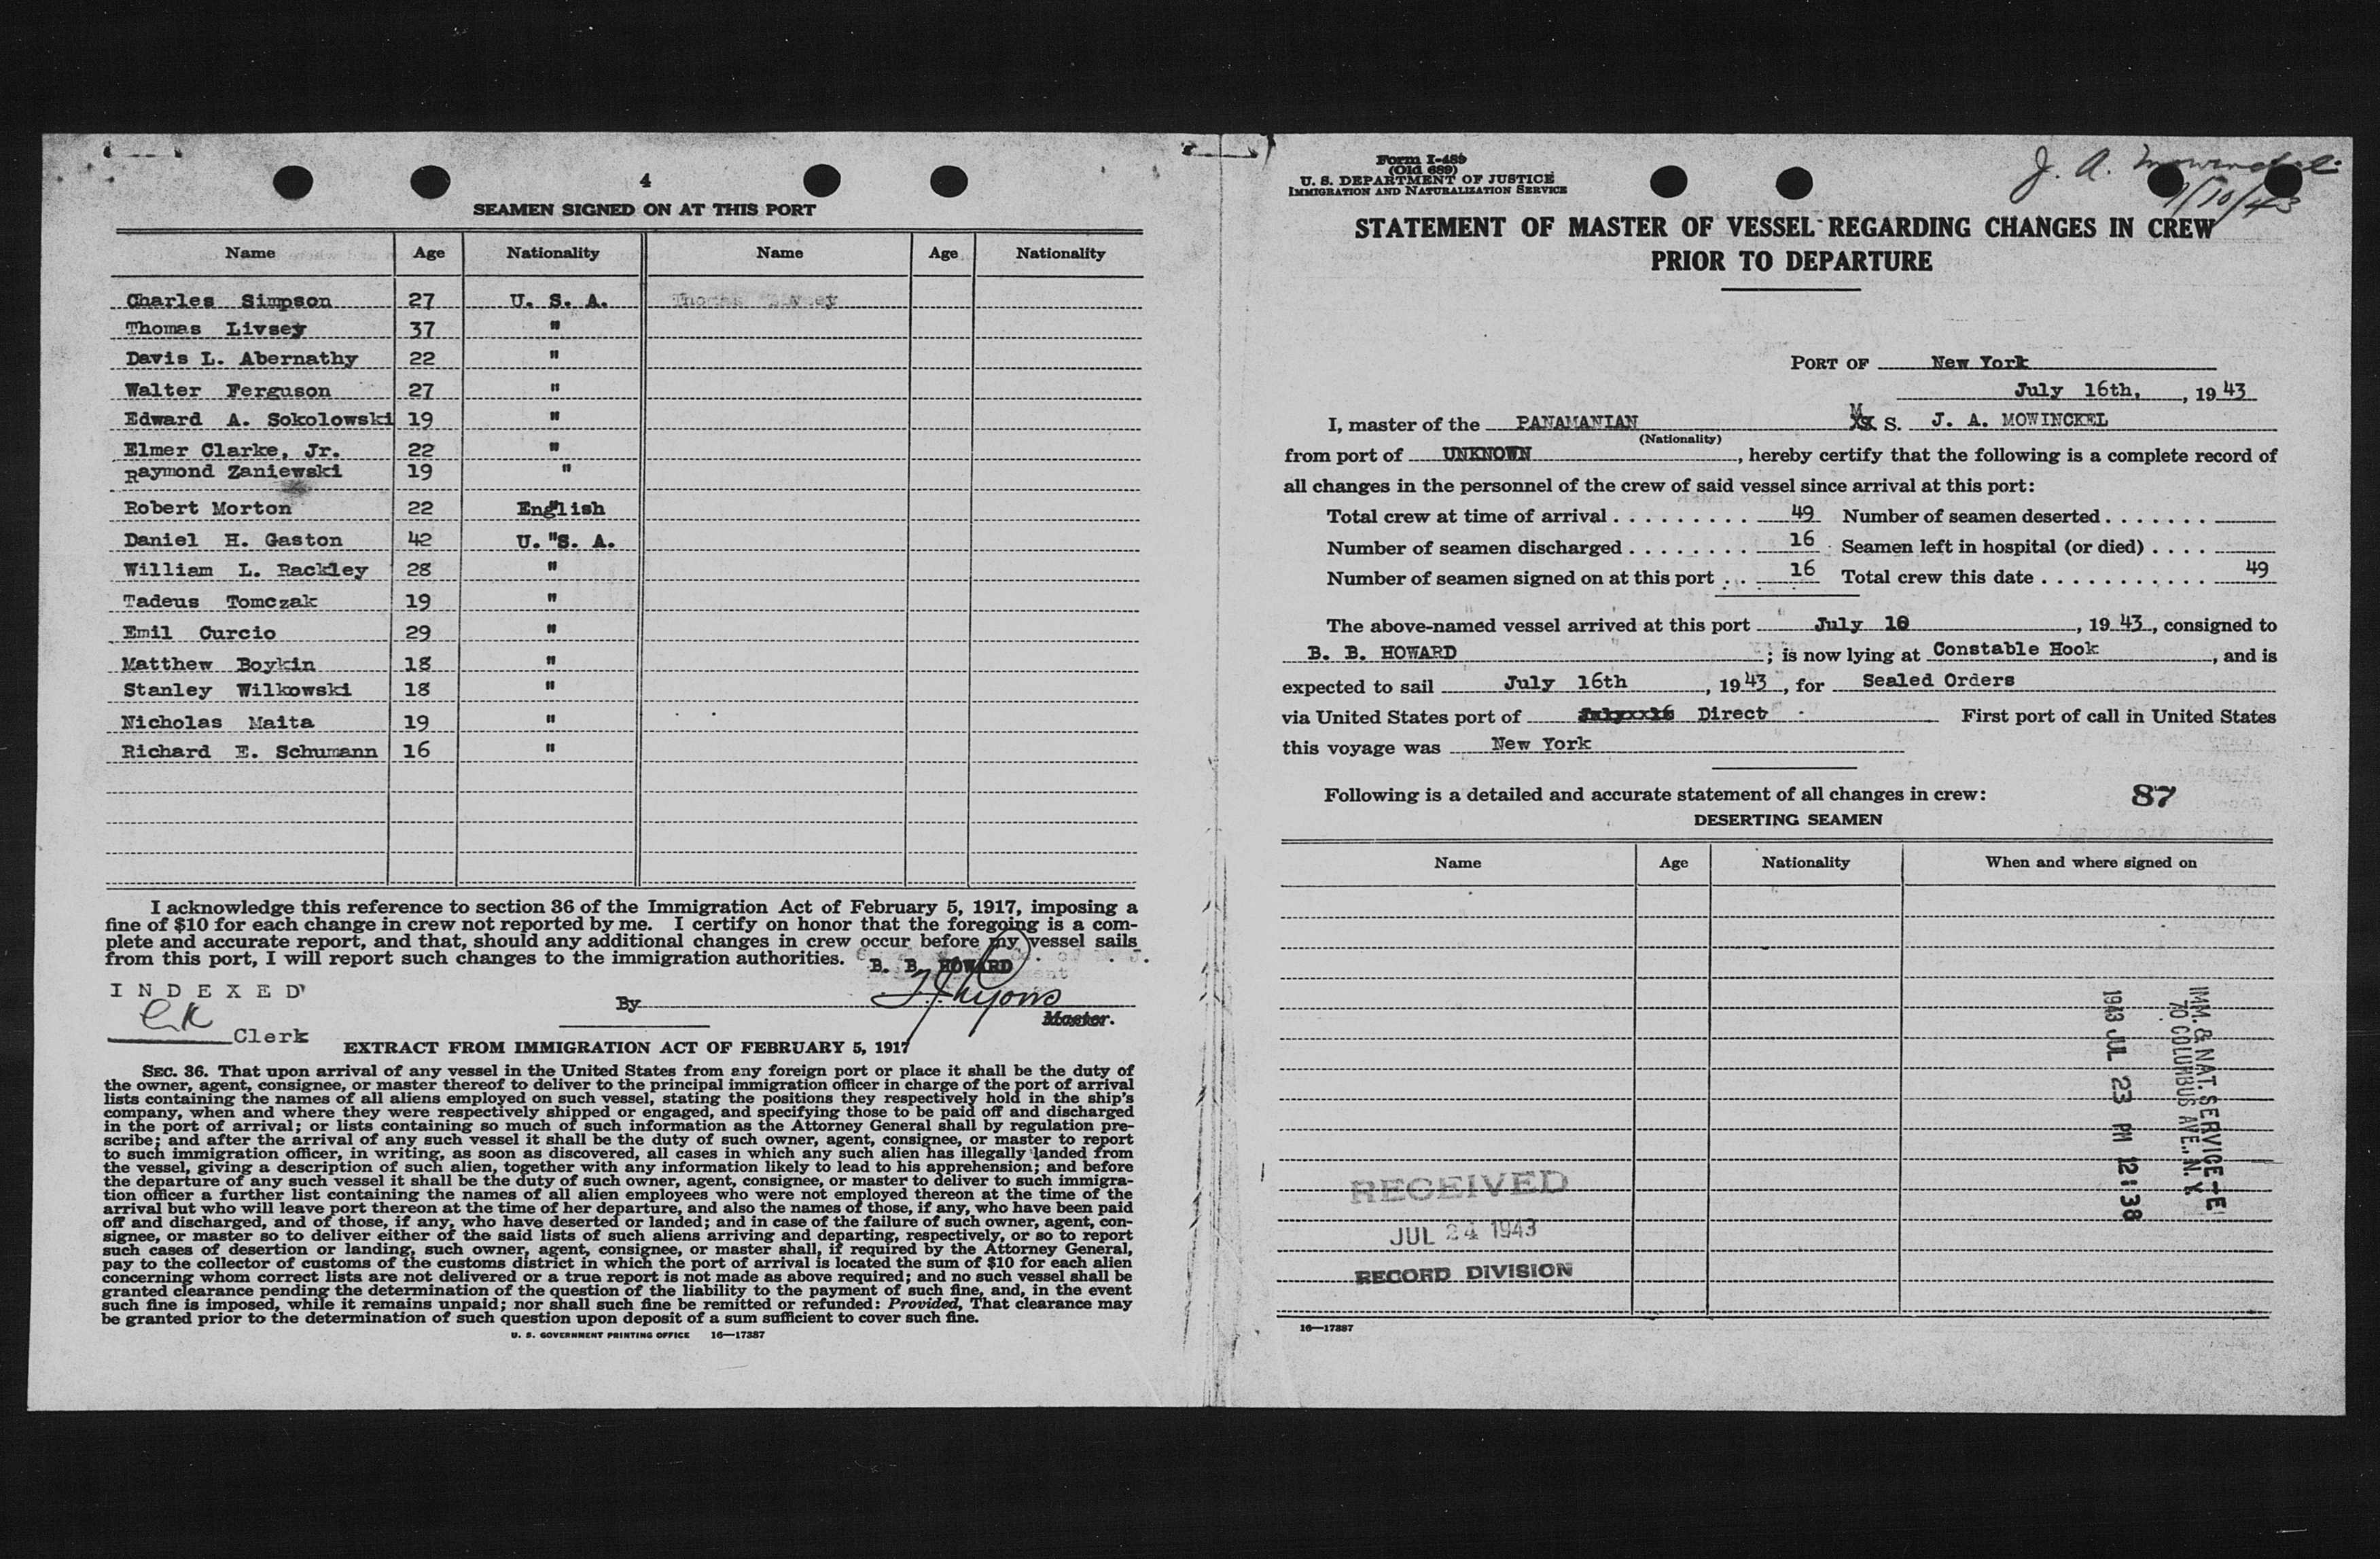 4
SEAMEN SIGNED ON AT THIS PORT
Name Age Nationality Name Age Nationality
Charles Simpson 27 U. S. A. Thomas Livsey
Thomas Livsey 37 "
Davis L. Abernathy 22 "
Walter Ferguson 27 "
Edward A. Sokolowski 19 "
Elmer Clarke, Jr. 22 "
Raymond Zaniewski 19 "
Robert Morton 22 English
Daniel H. Gaston 42 U. S. A.
William L. Rackley 28 "
Tadeus Tomczak 19 "
Emil Curcio 29 "
Matthew Boykin 18 "
Stanley Wilkowski 18 "
Nicholas Maita 19 "
Richard E. Schumann 16 "
I acknowledge this reference to section 36 of the Immigration Act of February 5, 1917, imposing a
fine of $10 for each change in crew not reported by me. I certify on honor that the foregoing is a com-
plete and accurate report, and that, should any additional changes in crew occur before my vessel sails
from this port, I will report such changes to the immigration authorities.
B. B. HOWARD
INDEXED
By
Master.
Clerk
EXTRACT FROM IMMIGRATION ACT OF FEBRUARY 5, 1917
SEC. 36. That upon arrival of any vessel in the United States from any foreign port or place it shall be the duty of
the owner, agent, consignee, or master thereof to deliver to the principal immigration officer in charge of the port of arrival
lists containing the names of all aliens employed on such vessel, stating the positions they respectively hold in the ship's
company, when and where they were respectively shipped or engaged, and specifying those to be paid off and discharged
in the port of arrival; or lists containing so much of such information as the Attorney General shall by regulation pre-
scribe; and after the arrival of any such vessel it shall be the duty of such owner, agent, consignee, or master to report
to such immigration officer, in writing, as soon as discovered, all cases in which any such alien has illegally landed from
the vessel, giving a description of such alien, together with any information likely to lead to his apprehension; and before
the departure of any such vessel it shall be the duty of such owner, agent, consignee, or master to deliver to such immigra-
tion officer a further list containing the names of all alien employees who were not employed thereon at the time of the
arrival but who will leave port thereon at the time of her departure, and also the names of those, if any, who have been paid
off and discharged, and of those, if any, who have deserted or landed; and in case of the failure of such owner, agent, con-
signee, or master so to deliver either of the said lists of such aliens arriving and departing, respectively, or so to report
such cases of desertion or landing, such owner, agent, consignee, or master shall, if required by the Attorney General,
pay to the collector of customs of the customs district in which the port of arrival is located the sum of $10 for each alien
concerning whom correct lists are not delivered or a true report is not made as above required; and no such vessel shall be
granted clearance pending the determination of the question of the liability to the payment of such fine, and, in the event
such fine is imposed, while it remains unpaid; nor shall such fine be remitted or refunded: Provided, That clearance may
be granted prior to the determination of such question upon deposit of a sum sufficient to cover such fine.
U. S. GOVERNMENT PRINTING OFFICE 16—17387
Form I-489
(Old 689)
U. S. DEPARTMENT OF JUSTICE
IMMIGRATION AND NATURALIZATION SERVICE
J. A. Mowinckel
7/10/43
STATEMENT OF MASTER OF VESSEL REGARDING CHANGES IN CREW
PRIOR TO DEPARTURE
PORT OF New York
July 16th, , 1943
I, master of the PANAMANIAN M S. J. A. MOWINCKEL
(Nationality)
from port of UNKNOWN , hereby certify that the following is a complete record of
all changes in the personnel of the crew of said vessel since arrival at this port:
Total crew at time of arrival . . . . . . . . . 49 Number of seamen deserted . . . . . . .
Number of seamen discharged . . . . . . . . 16 Seamen left in hospital (or died) . . . .
Number of seamen signed on at this port . . 16 Total crew this date . . . . . . . . . . . 49
The above-named vessel arrived at this port July 10 , 1943, consigned to
B. B. HOWARD ; is now lying at Constable Hook , and is
expected to sail July 16th , 1943, for Sealed Orders
via United States port of Direct First port of call in United States
this voyage was New York
Following is a detailed and accurate statement of all changes in crew: 87
DESERTING SEAMEN
Name Age Nationality When and where signed on
IMM. & NAT. SERVICE
70 COLUMBUS AVE., N.Y.
1943 JUL 23 PM 12:38
RECEIVED
JUL 24 1943
RECORD DIVISION
16—17387